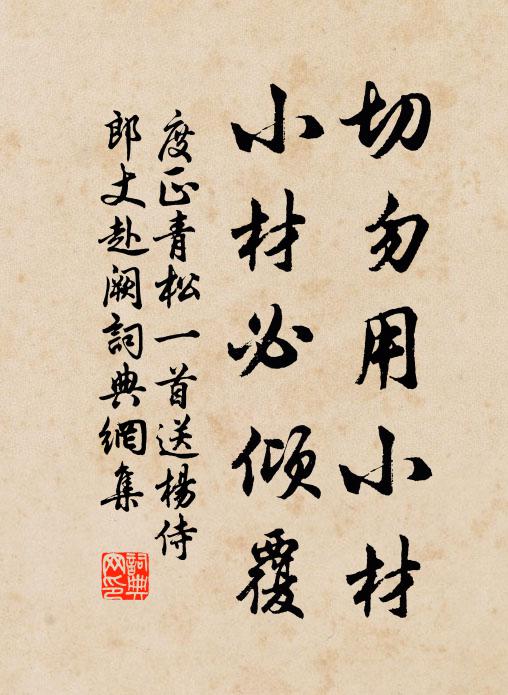 切勿用小材
小材必傾覆
度正青松一首送楊侍
郎丈赴闕詞典網集
詞典
网印